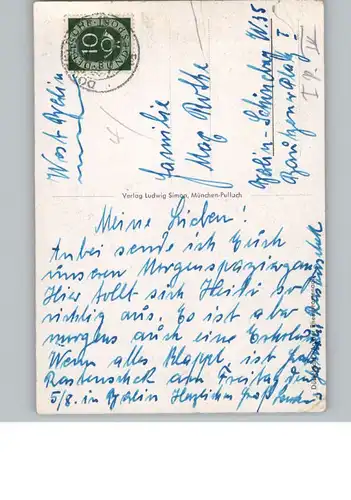 West Berlin
Familie
Max Rothe
Berlin-Schöneberg W35
Bautzener Platz
DEUTSCHE BUNDESPOST
10
Verlag Ludwig Simon, München-Pullach
Meine Lieben!
Anbei sende ich Euch
unseren Morgenspaziergang
Hier tollt sich Heidi so
richtig aus. Es ist aber
morgens auch eine Erholung
Wenn alles klappt, ist
am Freitag den
5/8. in Berlin Herzlichen Gruß